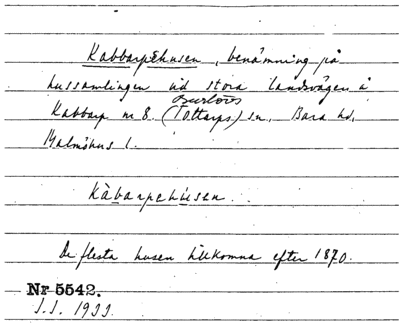 Kabbarpshusen, benämning på
hussamlingen vid stora landsvägen å
Burlövs
Kabbarp nr 8. (Tottarps) sn, Bara hd,
Malmöhus l.
Kåbarpehúsen.
De flesta husen tillkomna efter 1870.
Nr 5542.
I.I. 1933